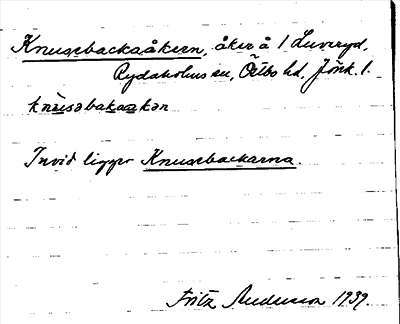 Knusebackaåkern, åker å 1 Luveryd,
Rydaholms sn, Östbo hd, Jönk. l.
knusabakaakən
Invid ligger Knusebackarna.
Fritz Andersson 1939.